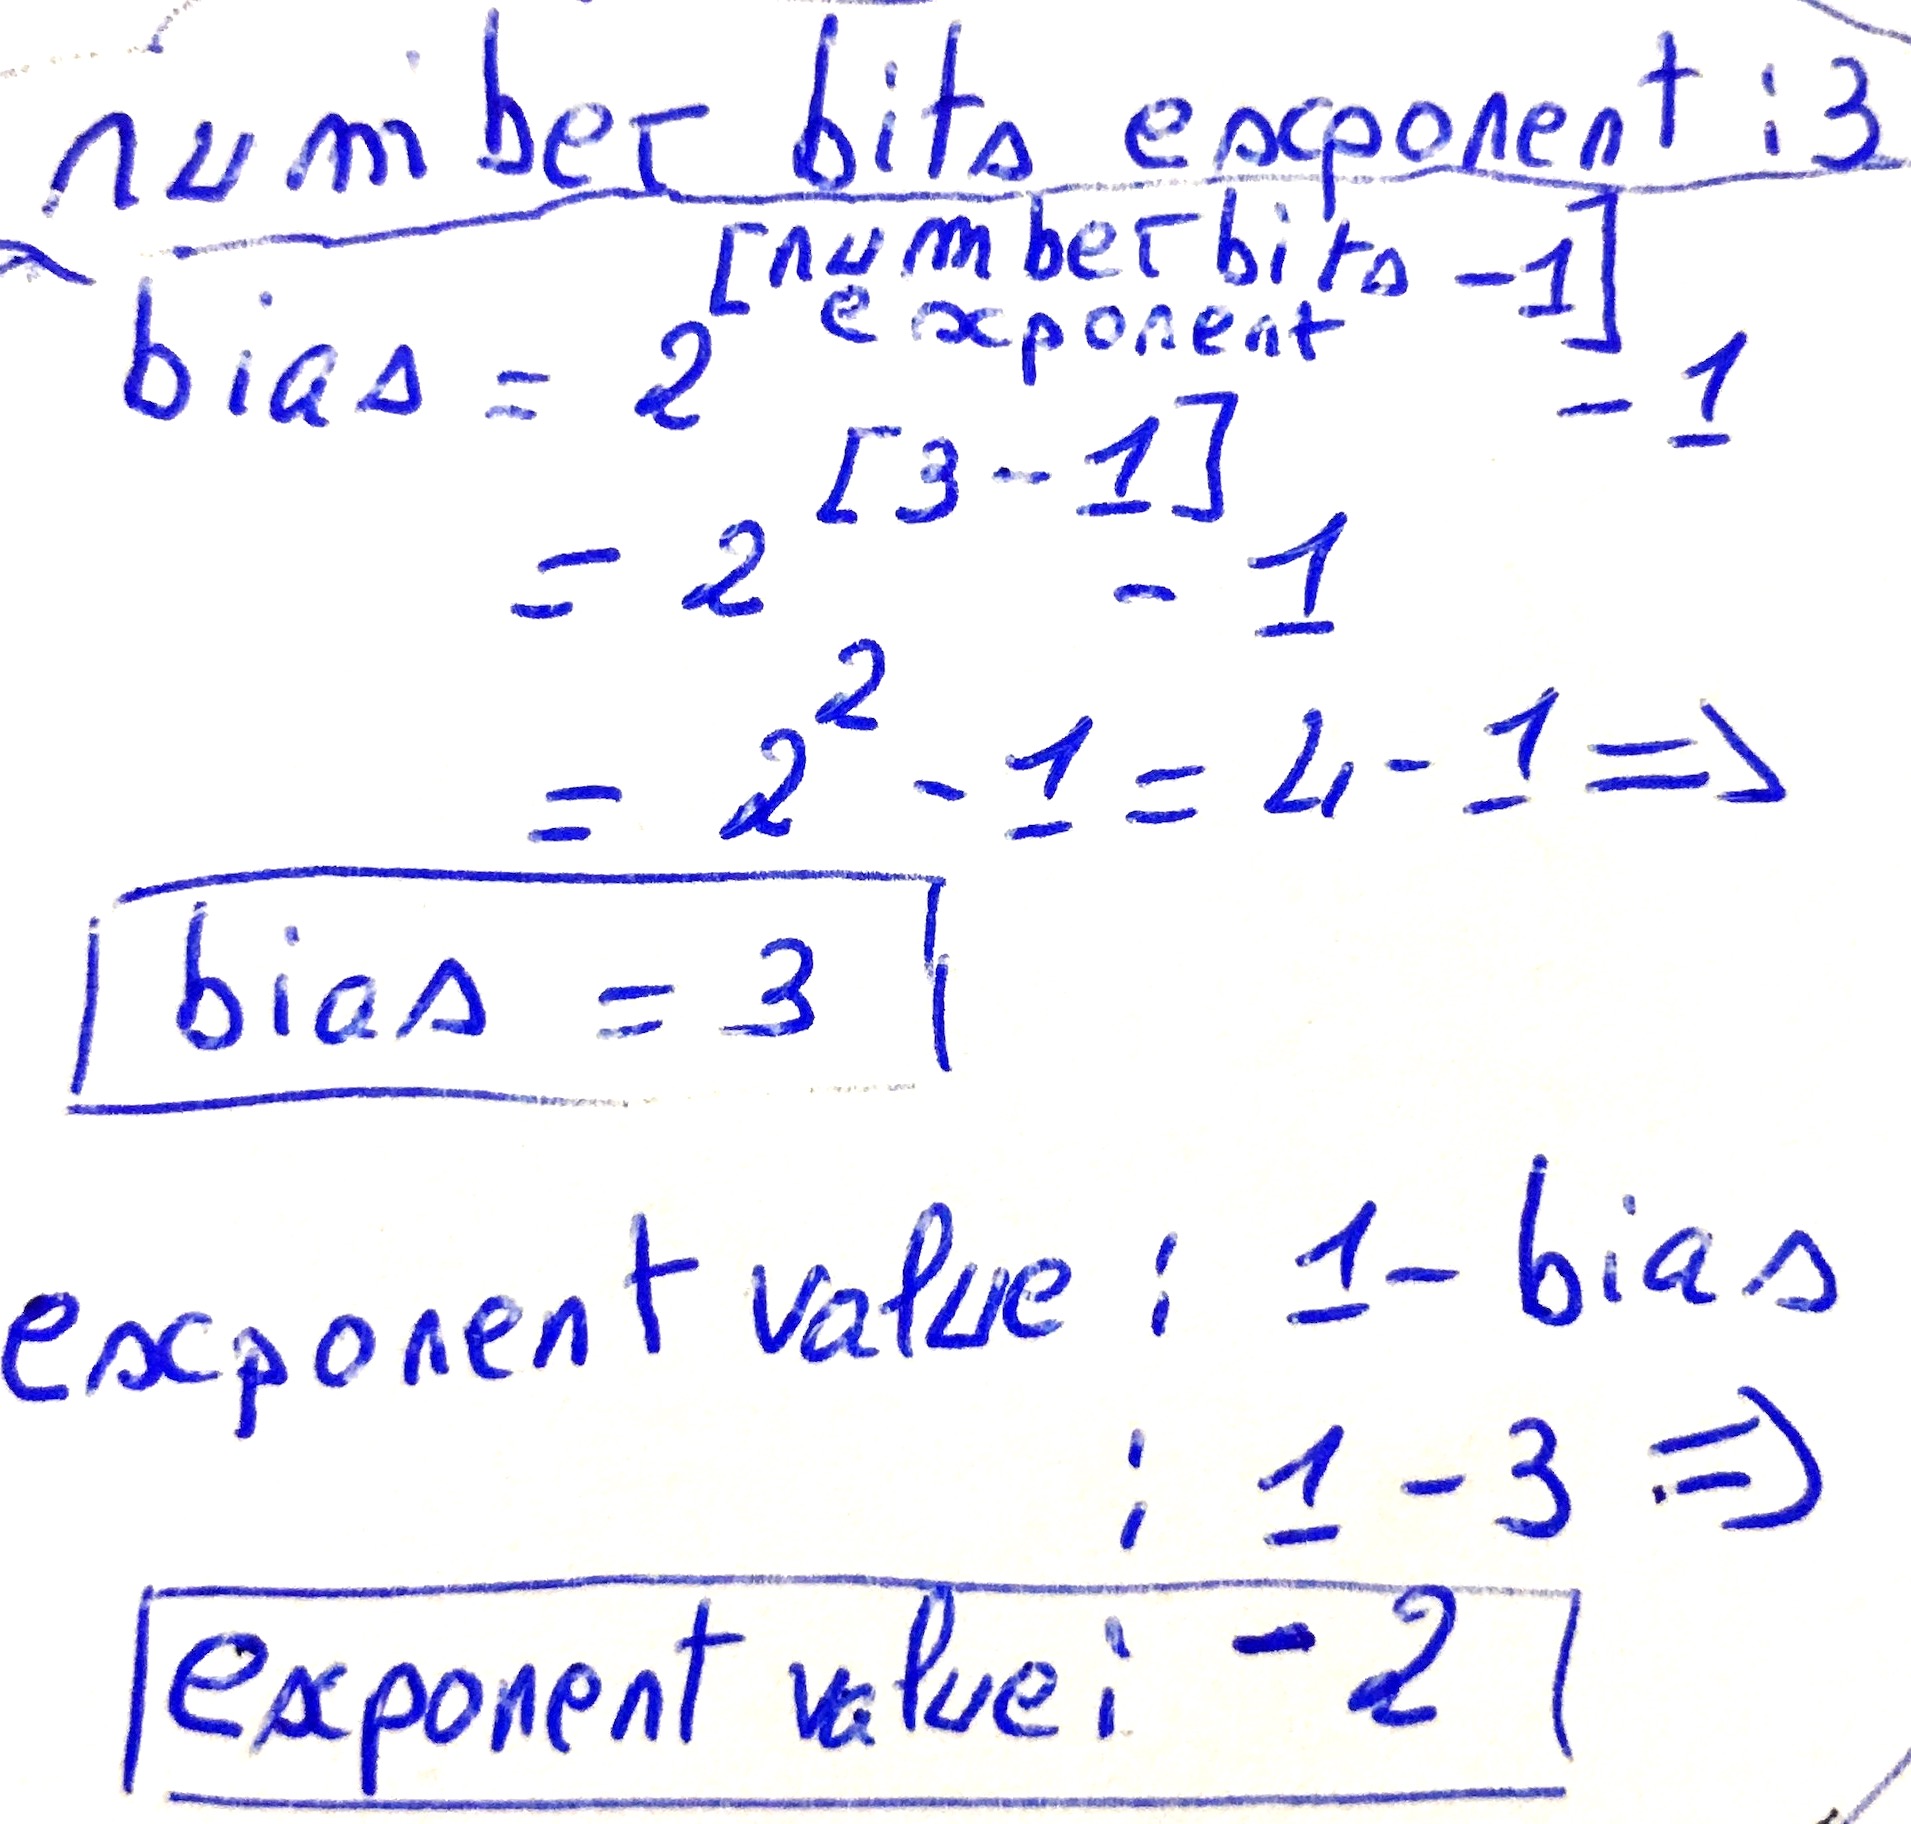 number bits exponent : 3
bias = 2^[number bits exponent - 1] - 1
= 2^[3 - 1] - 1
= 2^2 - 1 = 4 - 1 =>
bias = 3
exponent value : 1 - bias
: 1 - 3 =>
exponent value : -2